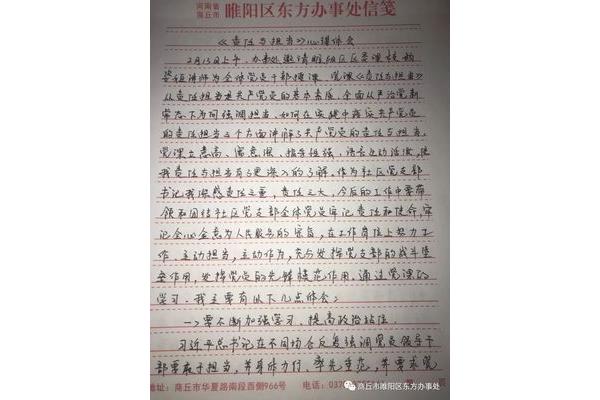 河南省
商丘市
睢阳区东方办事处信笺
《责任与担当》心得体会
2月13日上午,办事处邀请睢阳区区委党校
讲师为全体党员干部授课,党课《责任与担当》
从责任担当是共产党员的基本素质、全面从严治党新
常态下为何强调担当、如何在实践中落实共产党员
的责任担当三个方面讲解了共产党员的责任与担当,
党课立意高、寓意深、指导性强、语言生动活泼,使
我责任与担当有了更深入的了解。作为社区党支部
书记我深感责任之重,责任之大,今后的工作中要带
领和团结社区党支部全体党员牢记责任和使命,牢
记全心全意为人民服务的宗旨,在工作岗位上努力工
作、主动担当,主动作为,充分发挥党支部的战斗堡
垒作用,发挥党员的先锋模范作用。通过党课的
学习,我主要有以下几点体会:
一、要不断加强学习、提高政治站位。
习近平总书记在不同场合反复强调党员领导干
部要敢于担当,并身体力行、率先垂范,并要求党
地址:商丘市华夏路南段西侧966号 电话:037
商丘市睢阳区东方办事处